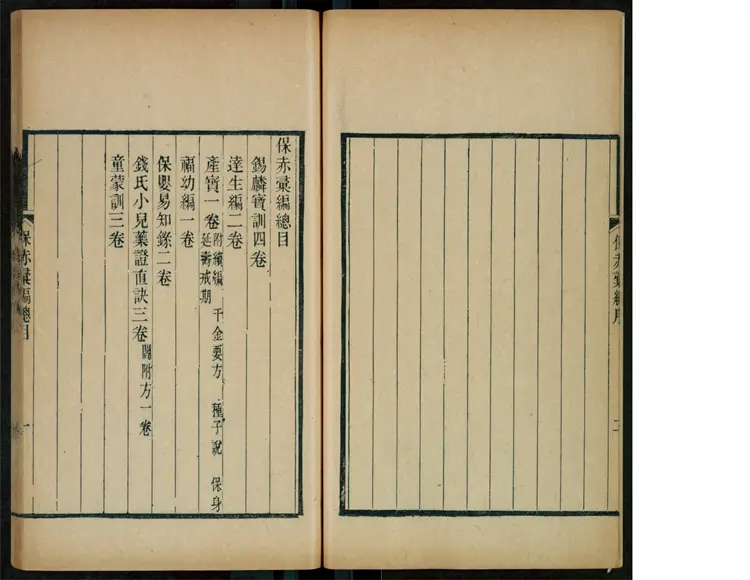 保赤彙編序
二
保赤彙編總目
錫麟寶訓四卷
達生編二卷
產寶一卷 附續編 千金要方 種子說 保身
延壽戒期
福幼編一卷
保嬰易知錄二卷
錢氏小兒藥證直訣三卷 閻附方一卷
童蒙訓三卷
保赤彙編總目
一